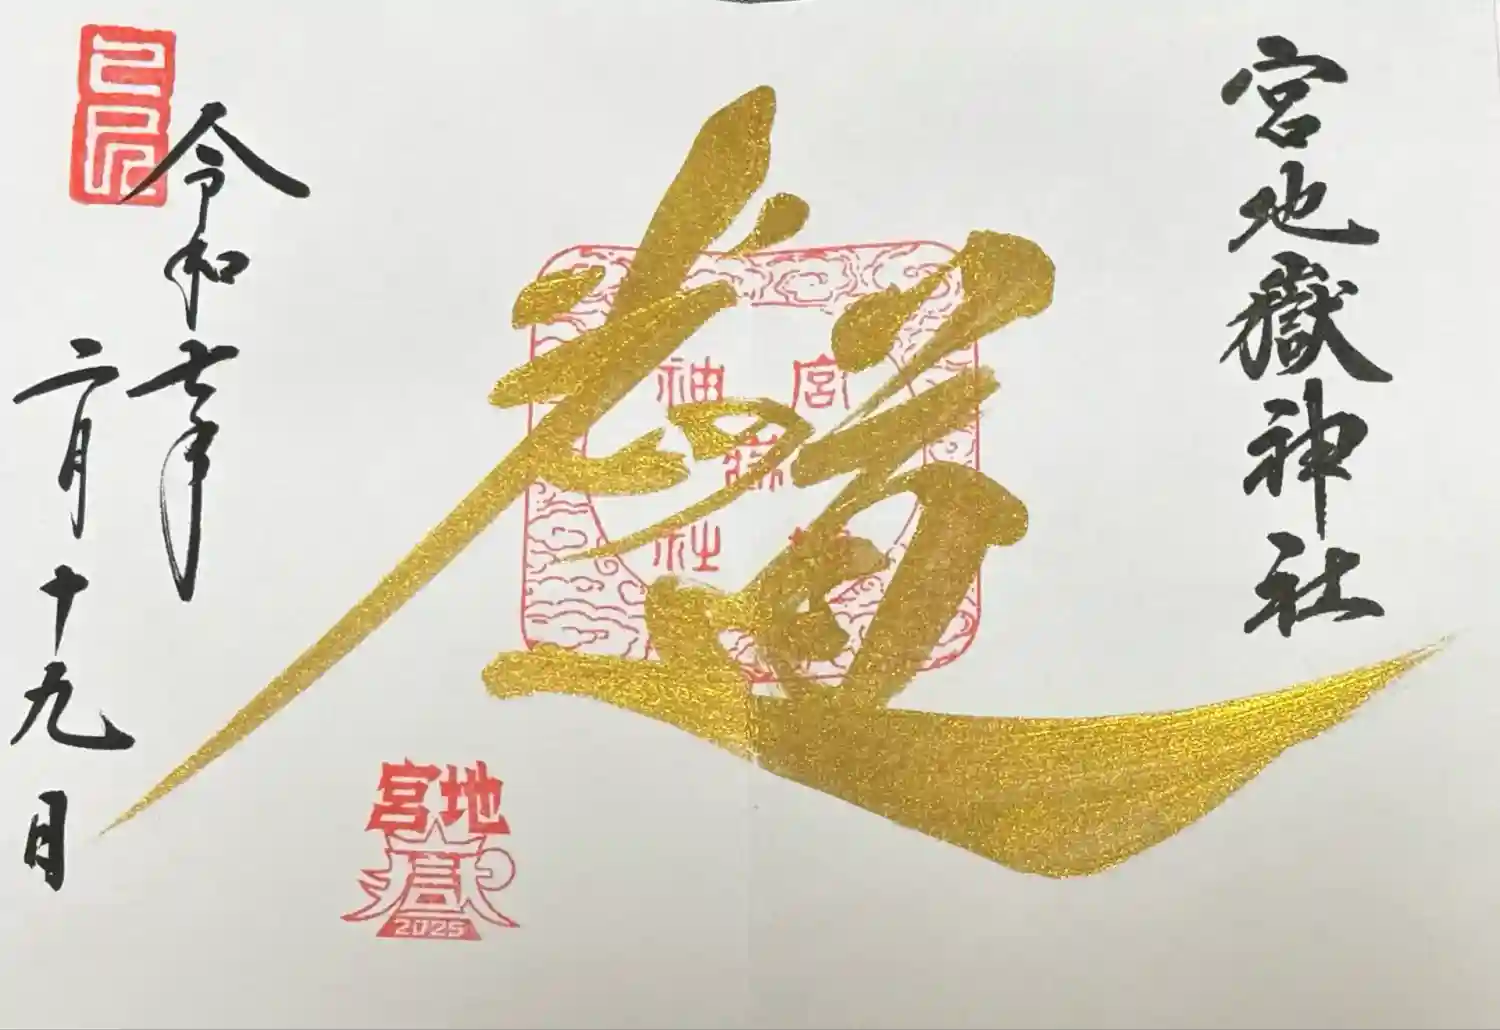 宮地嶽神社
光の道
宮地
嶽神社
宮地
嶽
2025
令和七年
二月十九日